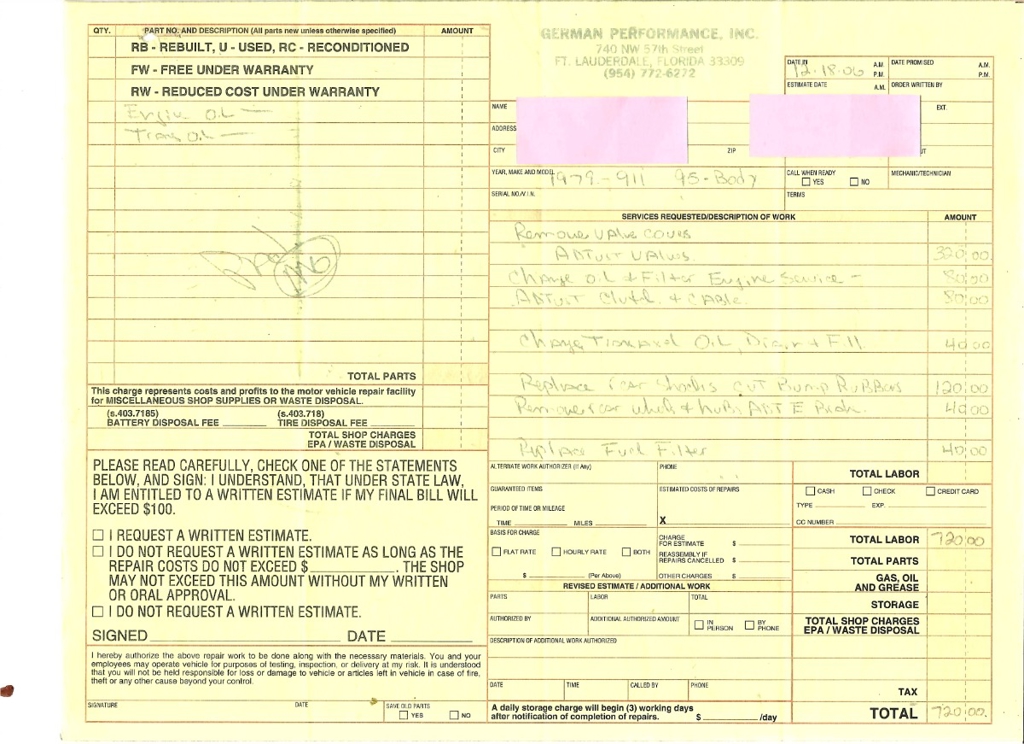 QTY. PART NO. AND DESCRIPTION (All parts new unless otherwise specified) AMOUNT
RB - REBUILT, U - USED, RC - RECONDITIONED
FW - FREE UNDER WARRANTY
RW - REDUCED COST UNDER WARRANTY
Engine OIL —
Trans OIL —
TOTAL PARTS
This charge represents costs and profits to the motor vehicle repair facility
for MISCELLANEOUS SHOP SUPPLIES OR WASTE DISPOSAL.
(s.403.7185) (s.403.718)
BATTERY DISPOSAL FEE TIRE DISPOSAL FEE
TOTAL SHOP CHARGES
EPA / WASTE DISPOSAL
PLEASE READ CAREFULLY, CHECK ONE OF THE STATEMENTS
BELOW, AND SIGN: I UNDERSTAND, THAT UNDER STATE LAW,
I AM ENTITLED TO A WRITTEN ESTIMATE IF MY FINAL BILL WILL
EXCEED $100.
I REQUEST A WRITTEN ESTIMATE.
I DO NOT REQUEST A WRITTEN ESTIMATE AS LONG AS THE
REPAIR COSTS DO NOT EXCEED $ . THE SHOP
MAY NOT EXCEED THIS AMOUNT WITHOUT MY WRITTEN
OR ORAL APPROVAL.
I DO NOT REQUEST A WRITTEN ESTIMATE.
SIGNED DATE
I hereby authorize the above repair work to be done along with the necessary materials. You and your
employees may operate vehicle for purposes of testing, inspection, or delivery at my risk. It is understood
that you will not be held responsible for loss or damage to vehicle or articles left in vehicle in case of fire,
theft or any other cause beyond your control.
SIGNATURE DATE SAVE OLD PARTS
YES NO
GERMAN PERFORMANCE, INC.
740 NW 57th Street
FT. LAUDERDALE, FLORIDA 33309
(954) 772-6272
DATE IN 12-18-06 A.M. P.M. DATE PROMISED A.M. P.M.
ESTIMATE DATE A.M. ORDER WRITTEN BY
NAME EXT.
ADDRESS
CITY ZIP
YEAR, MAKE AND MODEL 1979-911 95-Body
CALL WHEN READY YES NO MECHANIC/TECHNICIAN
SERIAL NO./V.I.N. TERMS
SERVICES REQUESTED/DESCRIPTION OF WORK AMOUNT
Remove valve covers
Adjust valves 320.00
Change oil & Filter Engine Service - 80.00
Adjust Clutch & Cable. 80.00
Change Transaxel Oil, Drain & Fill 40.00
Replace rear shocks CUT Bump RUBBers 120.00
Remove rear wheels & 40.00
Replace Fuel Filter 40.00
ALTERNATE WORK AUTHORIZER (If Any) PHONE TOTAL LABOR
GUARANTEED ITEMS ESTIMATED COSTS OF REPAIRS CASH CHECK CREDIT CARD
PERIOD OF TIME OR MILEAGE TYPE EXP.
TIME MILES X CC NUMBER
BASIS FOR CHARGE CHARGE FOR ESTIMATE $ TOTAL LABOR 720.00
FLAT RATE HOURLY RATE BOTH REASSEMBLY IF REPAIRS CANCELLED $ TOTAL PARTS
$ (Per Above) OTHER CHARGES $ GAS, OIL AND GREASE
REVISED ESTIMATE / ADDITIONAL WORK
PARTS LABOR TOTAL STORAGE
AUTHORIZED BY ADDITIONAL AUTHORIZED AMOUNT IN PERSON BY PHONE TOTAL SHOP CHARGES EPA / WASTE DISPOSAL
DESCRIPTION OF ADDITIONAL WORK AUTHORIZED
DATE TIME CALLED BY PHONE TAX
A daily storage charge will begin (3) working days
after notification of completion of repairs. $ /day TOTAL 720.00